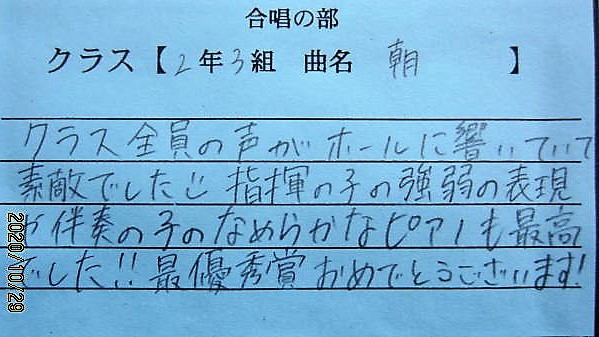 合唱の部
クラス【2年3組 曲名 朝 】
クラス全員の声がホールに響いていて
素敵でした 指揮の子の強弱の表現
や伴奏の子のなめらかなピアノも最高
でした!! 最優秀賞おめでとうございます!
2020/10/29